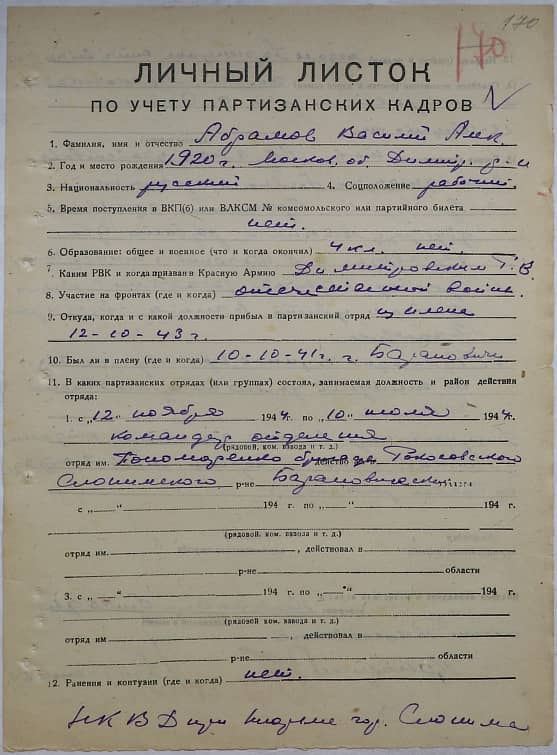 170
170
ЛИЧНЫЙ ЛИСТОК
ПО УЧЕТУ ПАРТИЗАНСКИХ КАДРОВ
1. Фамилия, имя и отчество Абрамов Василий Алек.
2. Год и место рождения 1920 г. Москов. об. Димитр. р-н
3. Национальность русский 4. Соцположение рабочий.
5. Время поступления в ВКП(б) или ВЛКСМ № комсомольского или партийного билета
нет.
6. Образование: общее и военное (что и когда окончил) 4 кл. нет.
7. Каким РВК и когда призван в Красную Армию Димитровским Г.В.
8. Участие на фронтах (где и когда) отечественной войне.
9. Откуда, когда и с какой должности прибыл в партизанский отряд из плена
12-10-43 г.
10. Был ли в плену (где и когда) 10-10-41 г. г. Барановичи
11. В каких партизанских отрядах (или группах) состоял, занимаемая должность и район действия
отряда:
1. с „12" ноября 1944 г. по „10" июля 1944 г.
командир отделения
(рядовой, ком. взвода и т. д.)
отряд им. Пономаренко бригада Рокосовского
Слонимского р-не Барановической
с „ —" 194 г. по „ —" 194 г.
(рядовой, ком. взвода и т. д.)
отряд им. , действовал в
р-не области
3. с „ —" 194 г. по „—" 194 г.
(рядовой, ком. взвода и т. д.)
отряд им , действовал в
р-не области
12. Ранения и контузии (где и когда) нет.
НКВД гор. Слонима